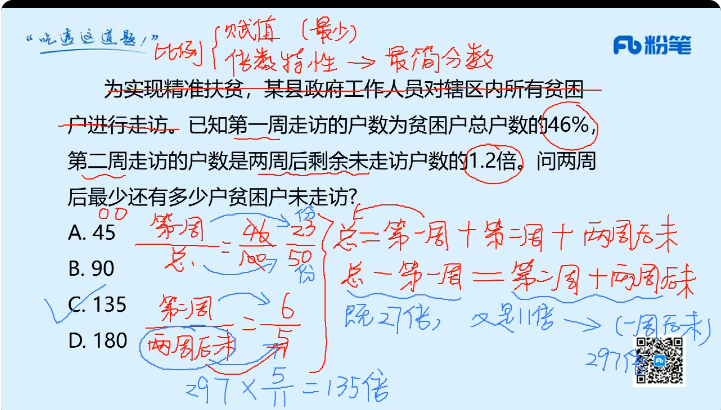 “吃透这道题！”
比例 赋值（最少）
倍数特性→最简分数
粉笔
为实现精准扶贫，某县政府工作人员对辖区内所有贫困
户进行走访。已知第一周走访的户数为贫困户总户数的46%，
第二周走访的户数是两周后剩余未走访户数的1.2倍。问两周
后最少还有多少户贫困户未走访?
A. 45
B. 90
C. 135
D. 180
第一周/总=46/100 23份/50份
第二周/两周后未=6/5
总=第一周+第二周+两周后未
总-第一周=第二周+两周后未
既27倍，又是11倍→(一周后未)
297倍
297×5/11=135倍